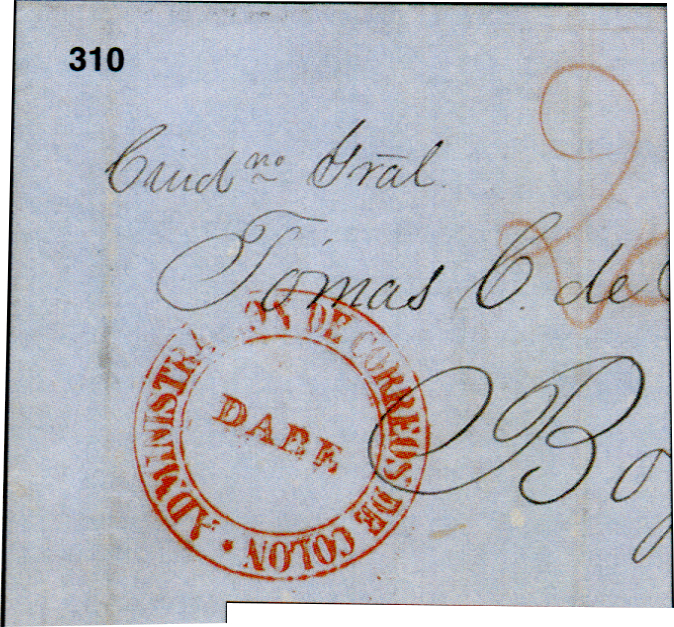 310
20
Ciudno Gral.
Tomas C. de
Bog
ADMINISTRACION DE CORREOS DE COLON
DABE